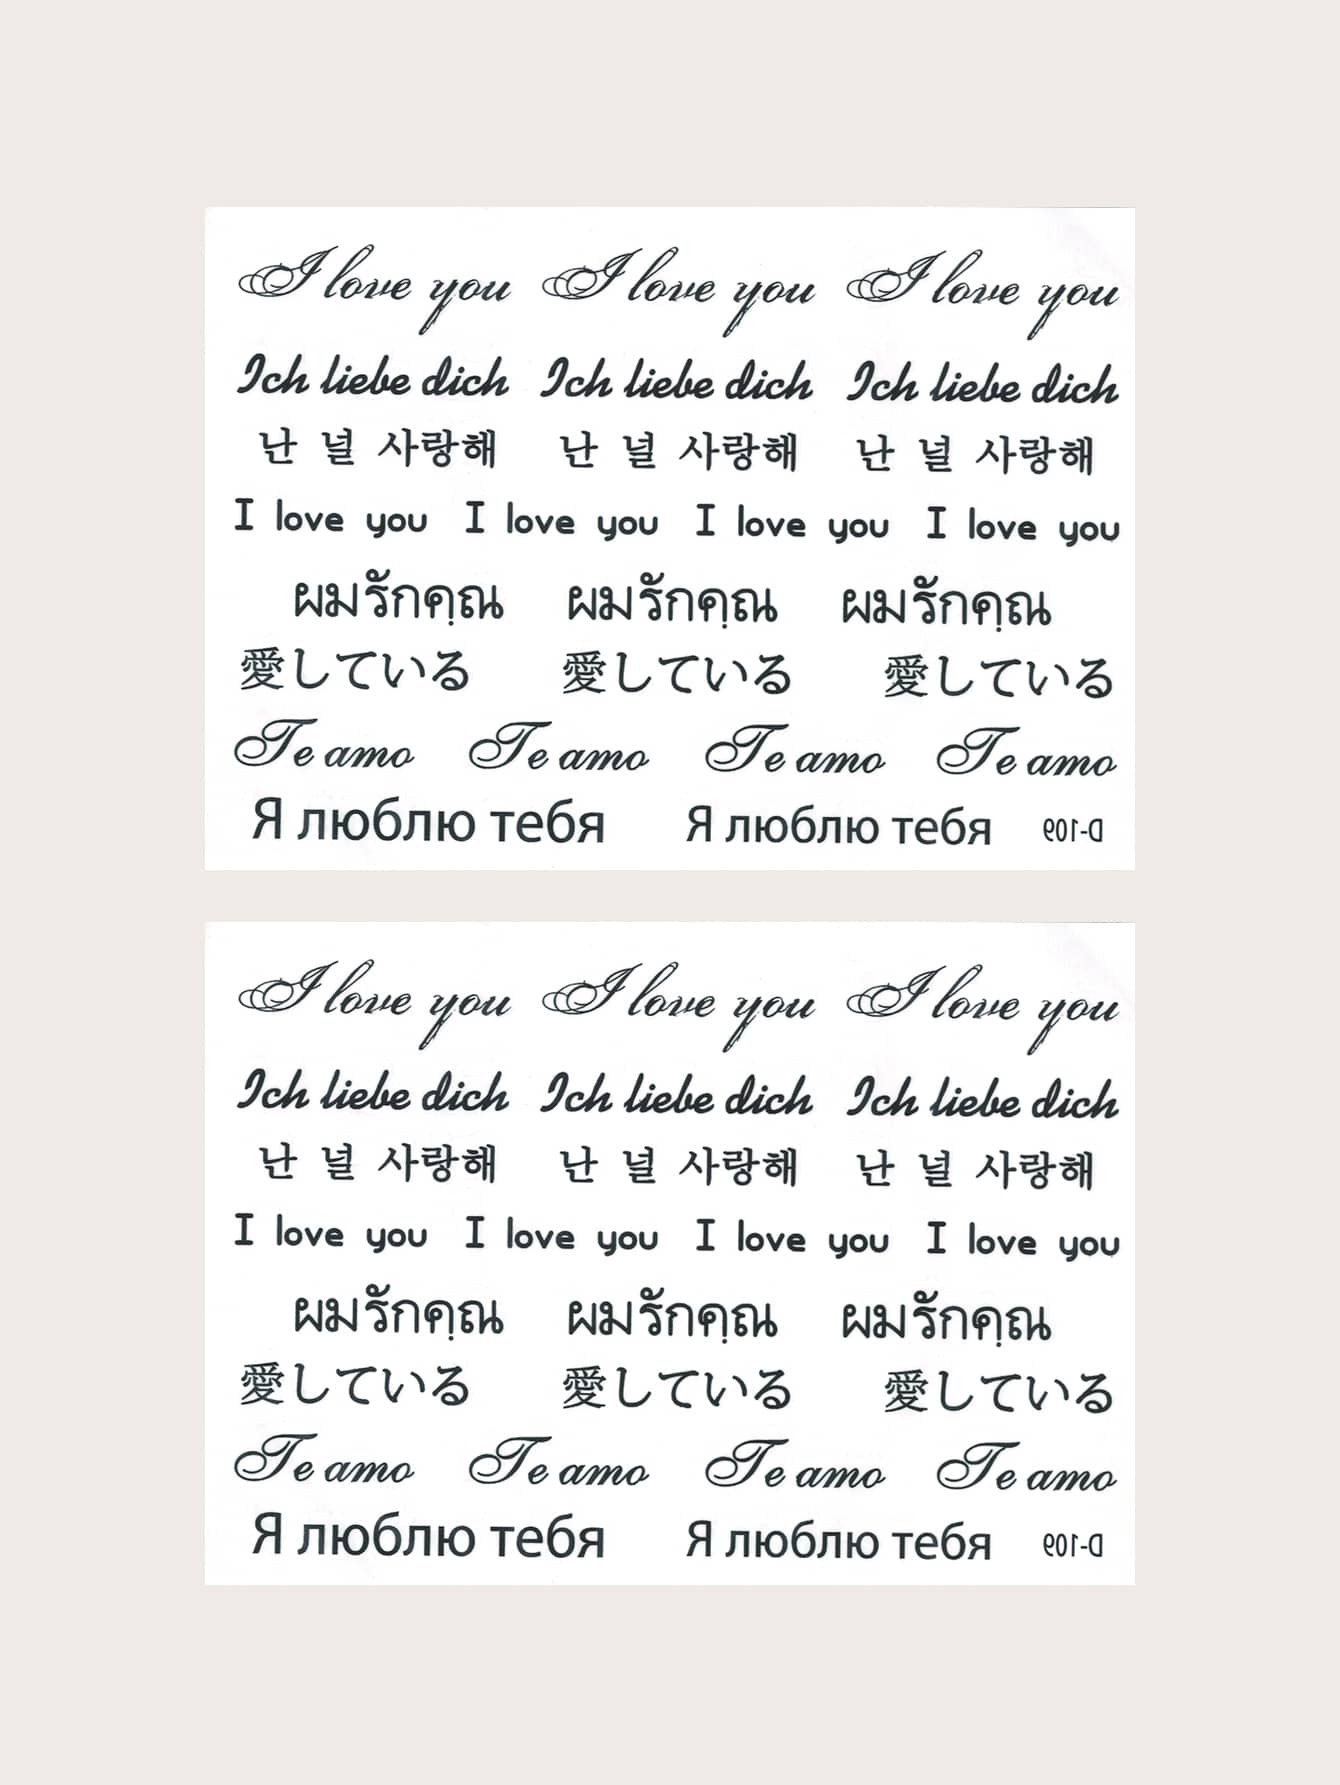 I love you I love you I love you
Ich liebe dich Ich liebe dich Ich liebe dich
난 널 사랑해 난 널 사랑해 난 널 사랑해
I love you I love you I love you I love you
ผมรักคุณ ผมรักคุณ ผมรักคุณ
愛している 愛している 愛している
Te amo Te amo Te amo Te amo
Я люблю тебя Я люблю тебя D-109
I love you I love you I love you
Ich liebe dich Ich liebe dich Ich liebe dich
난 널 사랑해 난 널 사랑해 난 널 사랑해
I love you I love you I love you I love you
ผมรักคุณ ผมรักคุณ ผมรักคุณ
愛している 愛している 愛している
Te amo Te amo Te amo Te amo
Я люблю тебя Я люблю тебя D-109